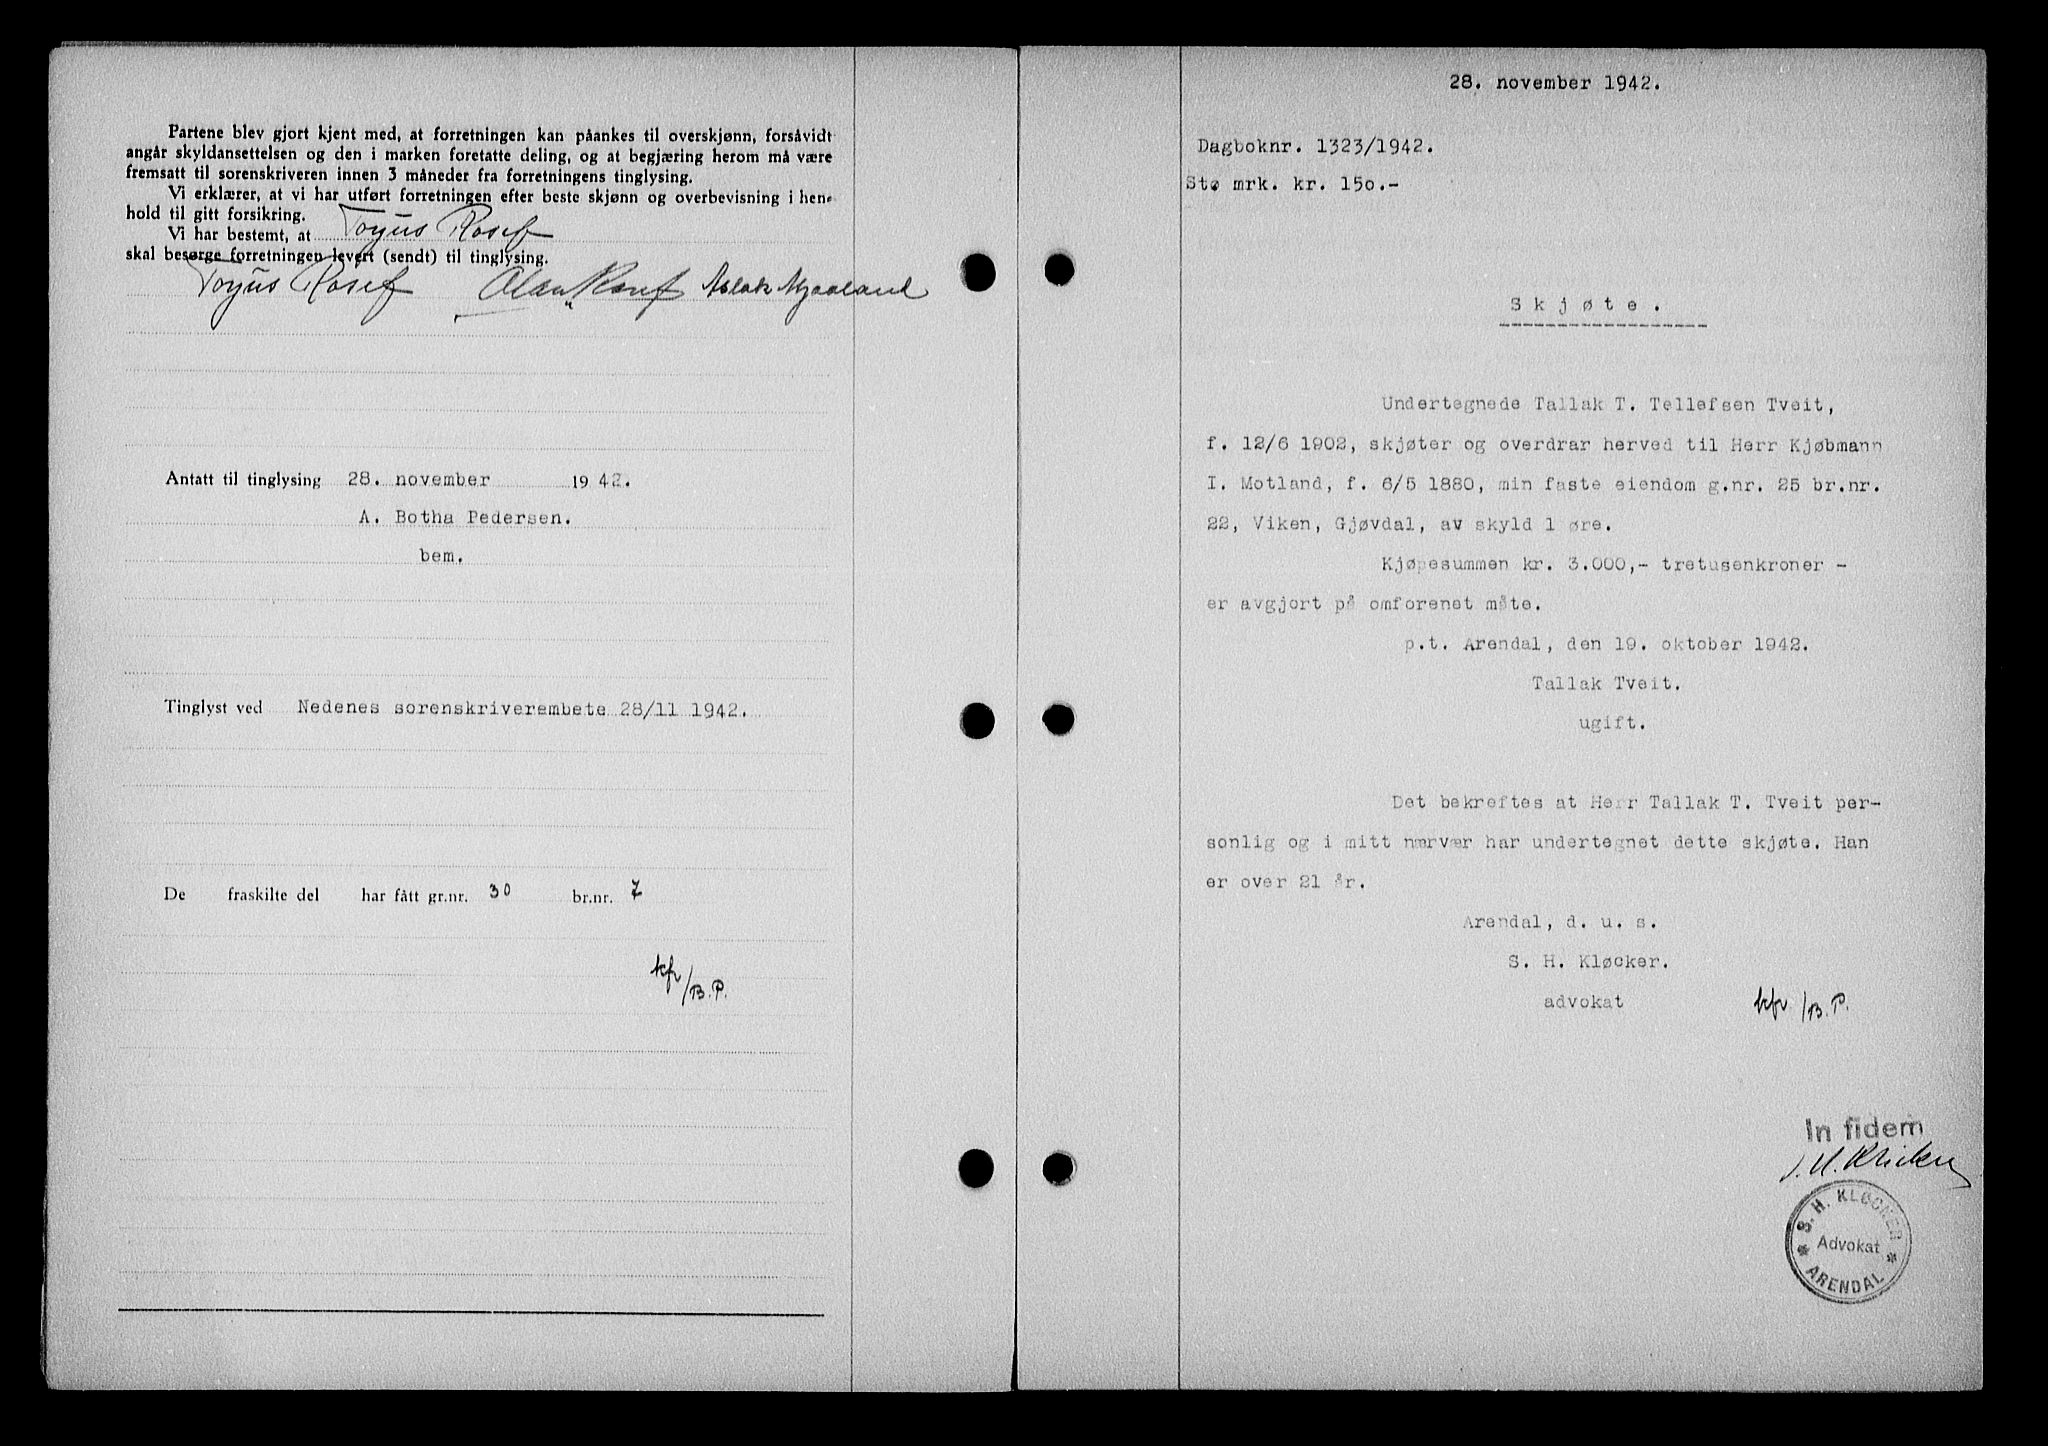 Partene blev gjort kjent med, at forretningen kan påankes til overskjønn, forsåvidt
angår skyldansettelsen og den i marken foretatte deling, og at begjæring herom må være
fremsatt til sorenskriveren innen 3 måneder fra forretningens tinglysing.
Vi erklærer, at vi har utført forretningen efter beste skjønn og overbevisning i hen-
hold til gitt forsikring.
Vi har bestemt, at Torjus Rosef
skal besørge forretningen levert (sendt) til tinglysing.
Torjus Rosef Olav Rosef Aslak Mjaaland
Antatt til tinglysing 28. november 1942.
A. Botha Pedersen.
bem.
Tinglyst ved Nedenes sorenskriverembete 28/11 1942.
De fraskilte del har fått gr.nr. 30 br.nr. 7
kfr /B.P.
28. november 1942.
Dagboknr. 1323/1942.
Stø mrk. kr. 150.-
Skjøte.
Undertegnede Tallak T. Tellefsen Tveit,
f. 12/6 1902, skjøter og overdrar herved til Herr Kjøbmann
I. Motland, f. 6/5 1880, min faste eiendom g.nr. 25 br.nr.
22, Viken, Gjøvdal, av skyld 1 øre.
Kjøpesummen kr. 3.000,- tretusenkroner -
er avgjort på omforenet måte.
p.t. Arendal, den 19. oktober 1942.
Tallak Tveit.
ugift.
Det bekreftes at Herr Tallak T. Tveit per-
sonlig og i mitt nærvær har undertegnet dette skjøte. Han
er over 21 år.
Arendal, d. u. s.
S. H. Kløcker.
advokat kfr /B.P.
In fidem
S. H. Kløcker
S. H. KLØCKER
Advokat
* ARENDAL *